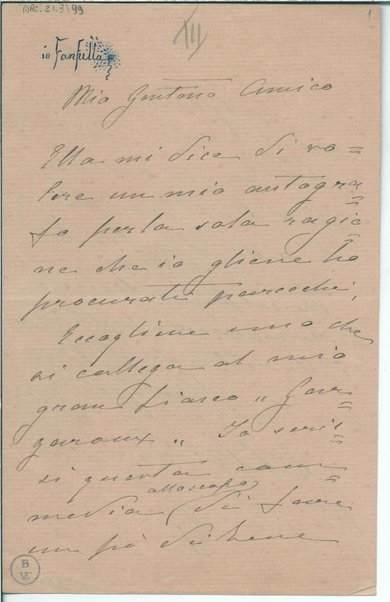 ARC. 21.3/99
1
XII
io Fanfulla
Mio Gentono Amico
Ella mi dice di vo=
lere un mio autogra=
fo per la sola ragio=
ne che io gliene ho
procurati parecchi,
Eccogliene uno che
si collega al mio
gran fiasco „ Gar=
garoux „ Io scris=
si questa com=
media (allo scopo) di fare
un pò di bene
B
VE